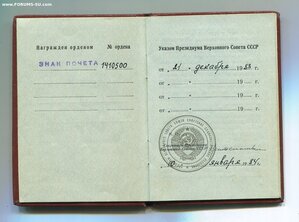 www.FORUMS-SU.com
Награжден орденом № ордена
ЗНАК ПОЧЕТА 1410500
Указом Президиума Верховного Совета СССР
от „21" декабря 1983
от „ " 19
от „ " 19
от „ " 19
января 1984.